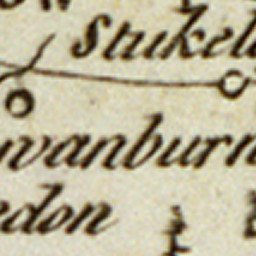 Stukel
wanburn
edon